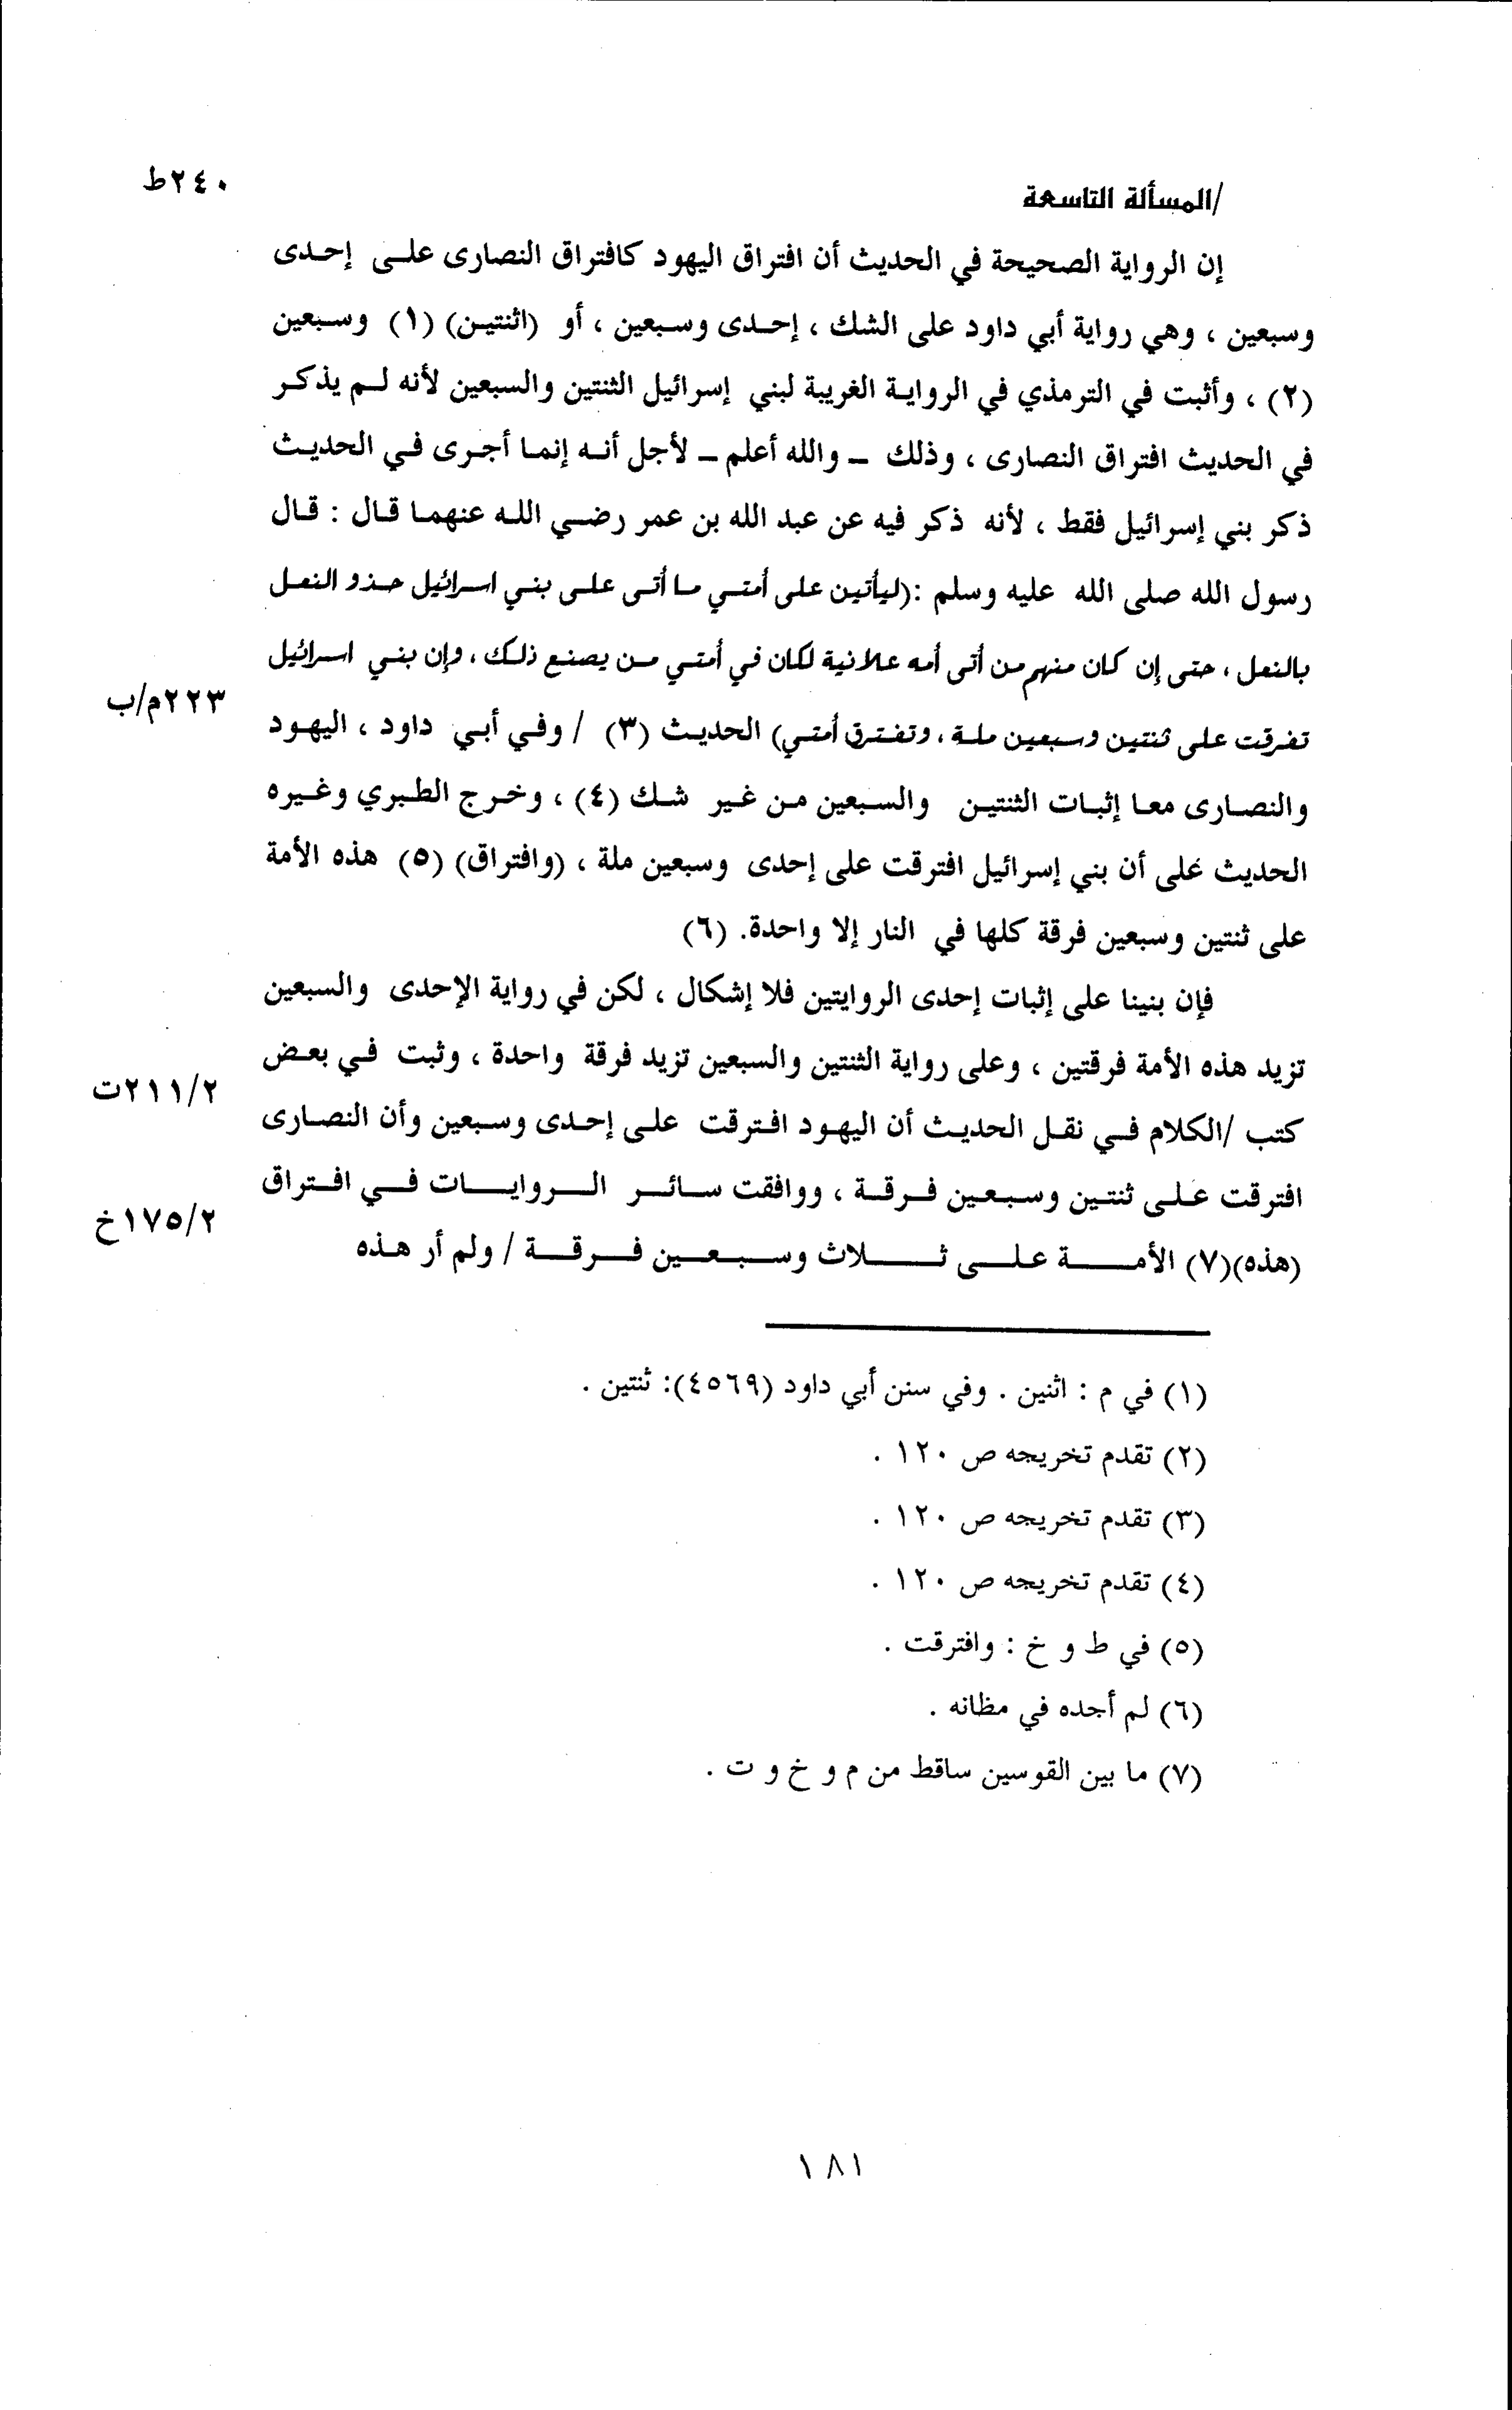 ٢٤٠ط
/المسألة التاسعة
إن الرواية الصحيحة في الحديث أن افتراق اليهود كافتراق النصارى على إحدى
وسبعين ، وهي رواية أبي داود على الشك ، إحدى وسبعين ، أو (اثنتين) (١) وسبعين
(٢) ، وأثبت في الترمذي في الرواية الغريبة لبني إسرائيل الثنتين والسبعين لأنه لم يذكر
في الحديث افتراق النصارى ، وذلك – والله أعلم – لأجل أنه إنما أجرى في الحديث
ذكر بني إسرائيل فقط ، لأنه ذكر فيه عن عبد الله بن عمر رضي الله عنهما قال : قال
رسول الله صلى الله عليه وسلم :(ليأتين على أمتي ما أتى على بني اسرائيل حذو النعل
بالنعل ، حتى إن كان منهم من أتى أمه علانية لكان في أمتي من يصنع ذلك ، وإن بني اسرائيل
٢٢٣م/ب
تفرقت على ثنتين وسبعين ملة ، وتفترق أمتي) الحديث (٣) / وفي أبي داود ، اليهود
والنصارى معا إثبات الثنتين والسبعين من غير شك (٤) ، وخرج الطبري وغيره
الحديث على أن بني إسرائيل افترقت على إحدى وسبعين ملة ، (وافتراق) (٥) هذه الأمة
على ثنتين وسبعين فرقة كلها في النار إلا واحدة. (٦)
فإن بنينا على إثبات إحدى الروايتين فلا إشكال ، لكن في رواية الإحدى والسبعين
تزيد هذه الأمة فرقتين ، وعلى رواية الثنتين والسبعين تزيد فرقة واحدة ، وثبت في بعض
٢١١/٢ت
كتب /الكلام في نقل الحديث أن اليهود افترقت على إحدى وسبعين وأن النصارى
افترقت على ثنتين وسبعين فرقة ، ووافقت سائر الروايات في افتراق
١٧٥/٢خ
(هذه)(٧) الأمة على ثلاث وسبعين فرقة / ولم أر هذه
(١) في م : اثنين . وفي سنن أبي داود (٤٥٦٩): ثنتين .
(٢) تقدم تخريجه ص ١٢٠ .
(٣) تقدم تخريجه ص ١٢٠ .
(٤) تقدم تخريجه ص ١٢٠ .
(٥) في ط و خ : وافترقت .
(٦) لم أجده في مظانه .
(٧) ما بين القوسين ساقط من م و خ و ت .
١٨١